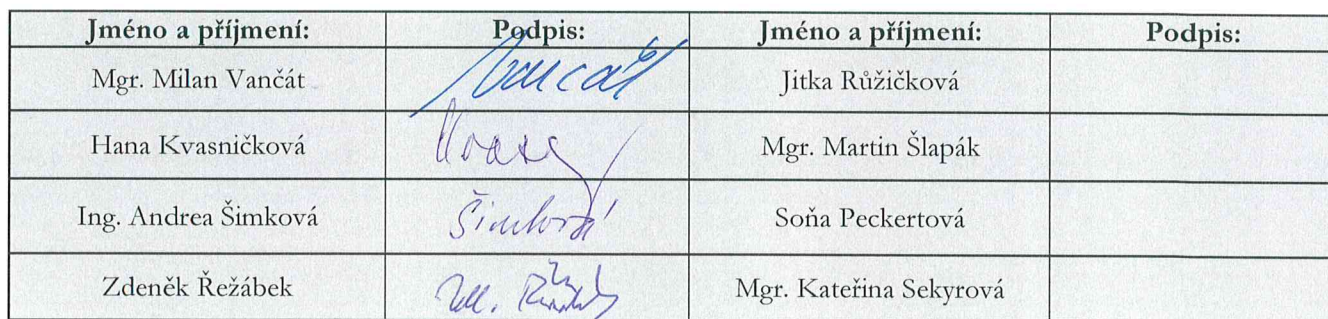 Jméno a příjmení: Podpis: Jméno a příjmení: Podpis:
Mgr. Milan Vančát Vancát Jitka Růžičková
Hana Kvasničková Mgr. Martin Šlapák
Ing. Andrea Šimková Šimková Soňa Peckertová
Zdeněk Řežábek Mgr. Kateřina Sekyrová